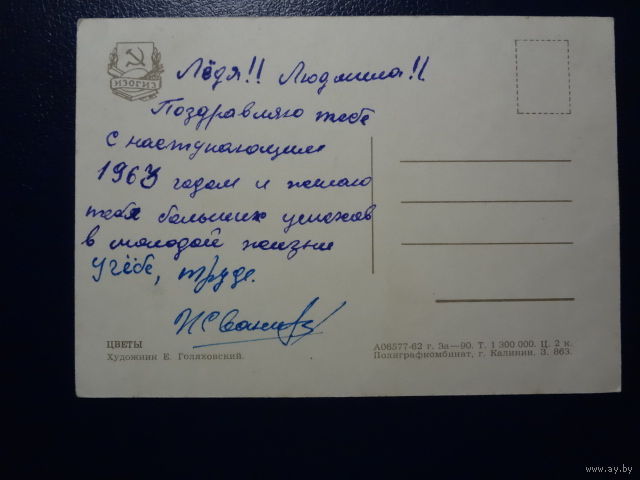 ИЗОГИЗ
Лёдя!! Людмила!!
Поздравляю тебе
с наступающим
1963 годом и желаю
тебя больших успехов
в молодой жизни
учёбе, труде.
ЦВЕТЫ
Художник Е. Голяховский.
А06577-62 г. За—90. Т. 1 300 000. Ц. 2 к.
Полиграфкомбинат, г. Калинин. З. 863.
www.ay.by